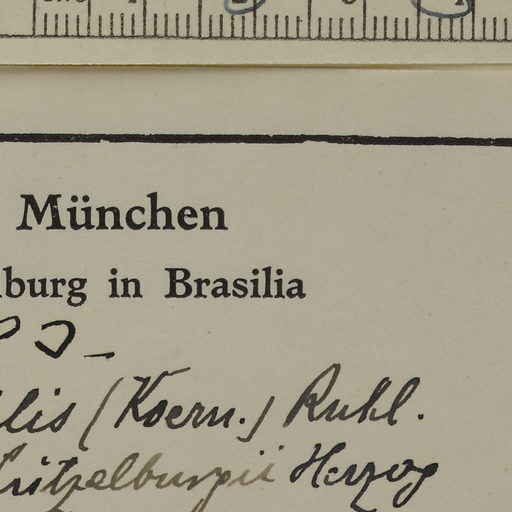 München
burg in Brasilia
lis (Koern.) Ruhl.
Lützelburgii Herzog